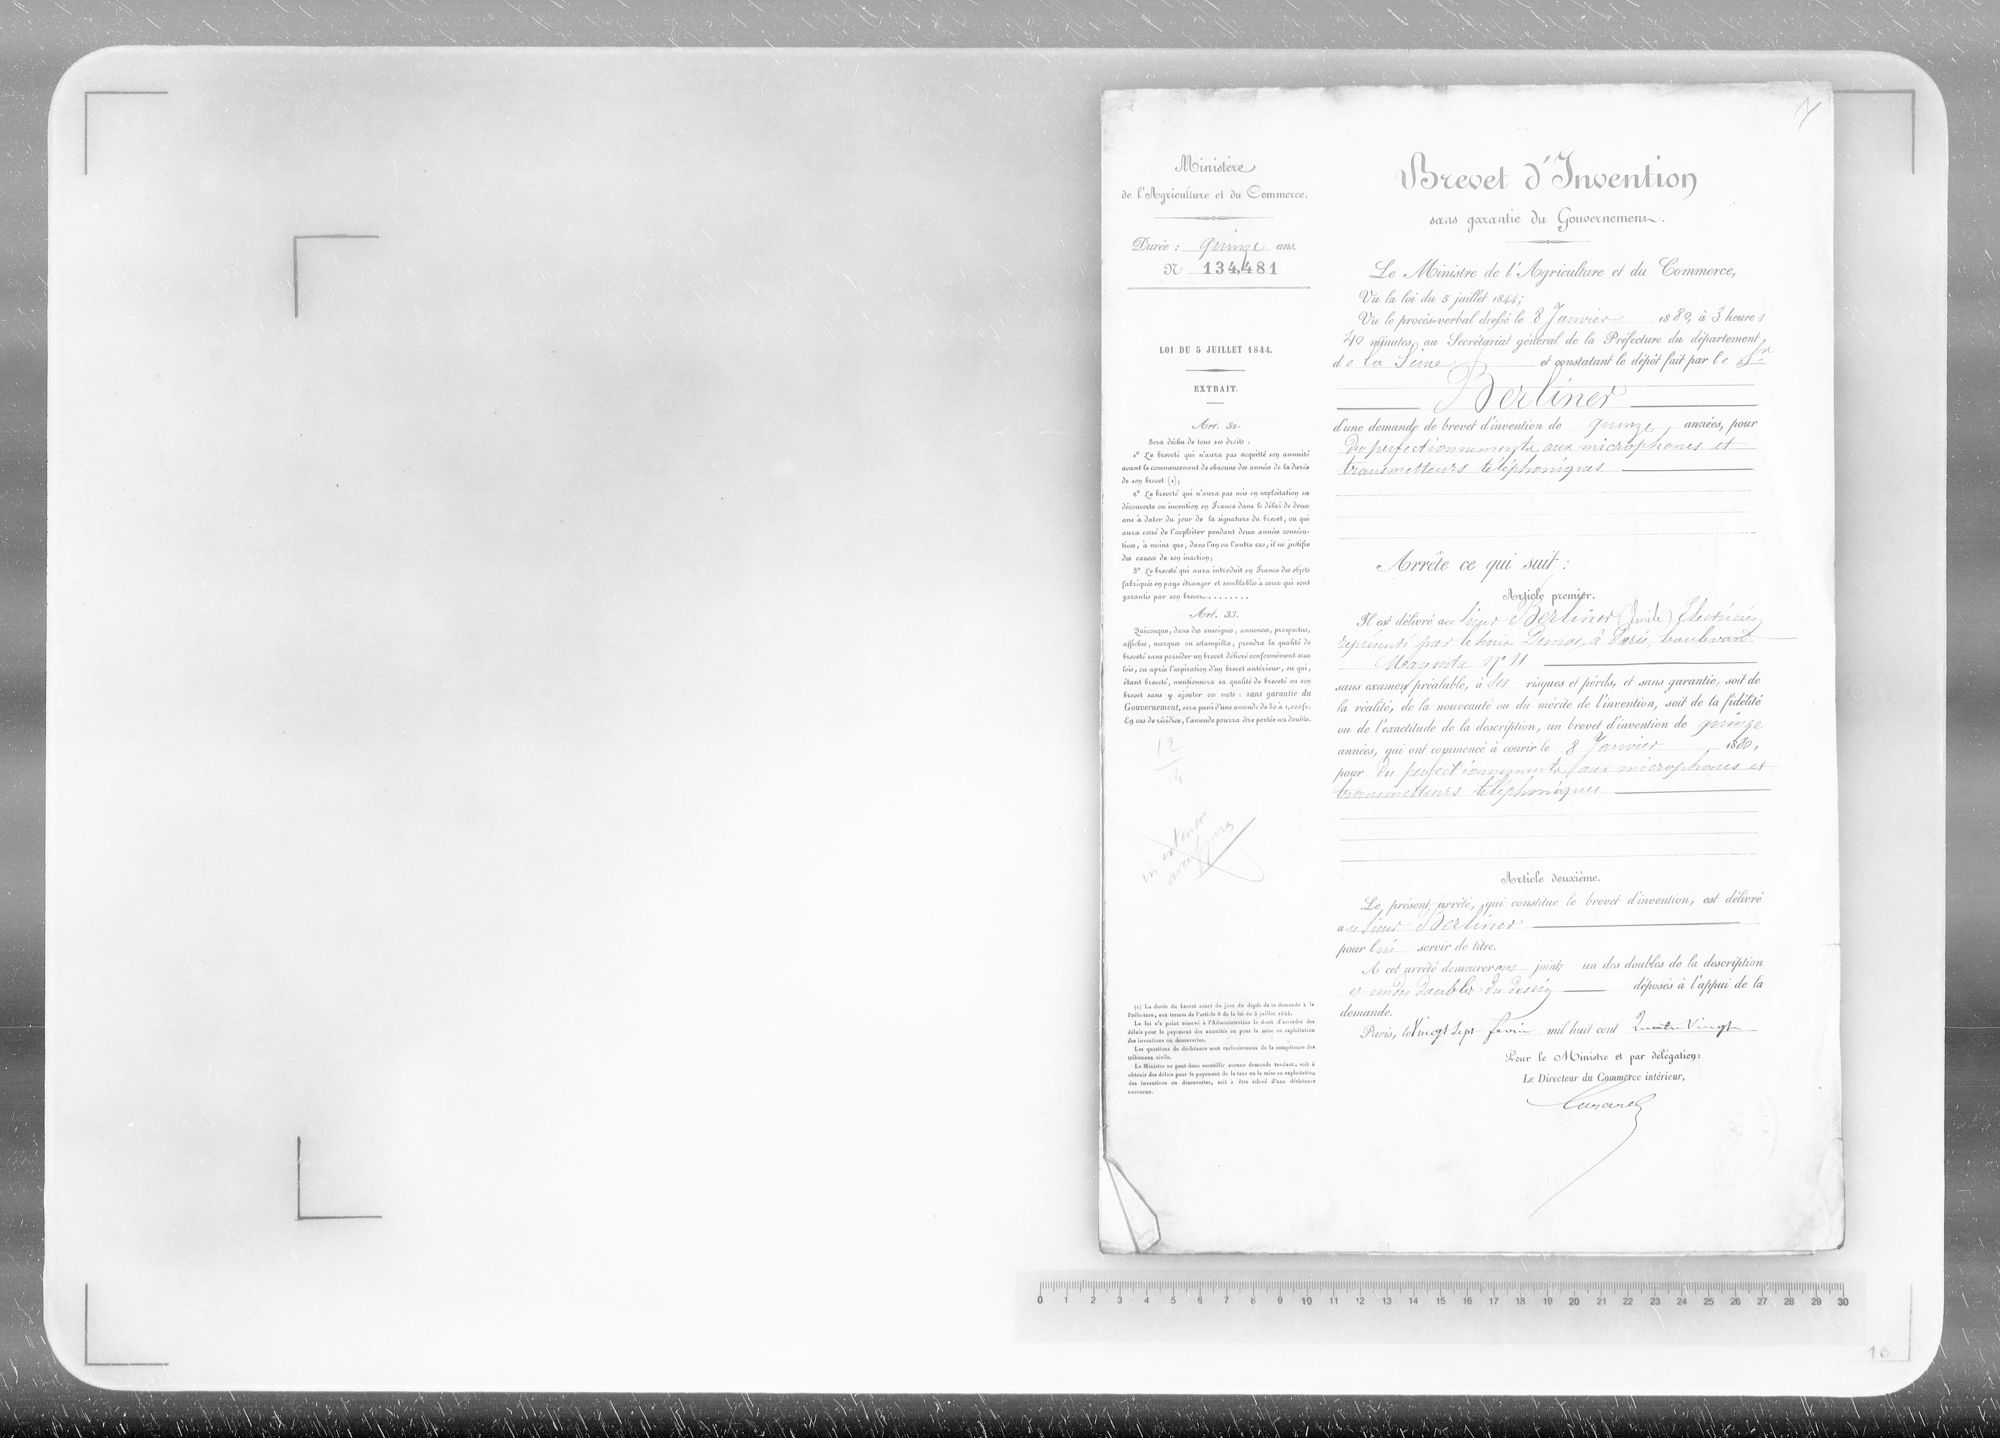 Ministère
de l'Agriculture et du Commerce.
Durée : quinze ans.
N° 134,481
LOI DU 5 JUILLET 1844.
EXTRAIT.
Art. 32.
Sera déchu de tous ses droits :
1° Le breveté qui n'aura pas acquitté son annuité
avant le commencement de chacune des années de la durée
de son brevet (1);
2° Le breveté qui n'aura pas mis en exploitation sa
découverte ou invention en France dans le délai de deux
ans à dater du jour de la signature du brevet, ou qui
aura cessé de l'exploiter pendant deux années consécu-
tives, à moins que, dans l'un ou l'autre cas, il ne justifie
des causes de son inaction;
3° Le breveté qui aura introduit en France des objets
fabriqués en pays étranger et semblables à ceux qui sont
garantis par son brevet........
Art. 33.
Quiconque, dans des enseignes, annonces, prospectus,
affiches, marques ou estampilles, prendra la qualité de
breveté sans posséder un brevet délivré conformément aux
lois, ou après l'expiration d'un brevet antérieur, ou qui,
étant breveté, mentionnera sa qualité de breveté ou son
brevet sans y ajouter ces mots : sans garantie du
Gouvernement, sera puni d'une amende de 50 à 1,000 fr.
En cas de récidive, l'amende pourra être portée au double.
12
4
in extenso
avec figures
(1) La durée du brevet court du jour du dépôt de la demande à la
Préfecture, aux termes de l'article 8 de la loi du 5 juillet 1844.
La loi n'a point réservé à l'Administration le droit d'accorder des
délais pour le payement des annuités ou pour la mise en exploitation
des inventions ou découvertes.
Les questions de déchéance sont exclusivement de la compétence des
tribunaux civils.
Le Ministre ne peut donc accueillir aucune demande tendant, soit à
obtenir des délais pour le payement de la taxe ou la mise en exploitation
des inventions ou découvertes, soit à être relevé d'une déchéance
encourue.
Brevet d'Invention
sans garantie du Gouvernement.
Le Ministre de l'Agriculture et du Commerce,
Vu la loi du 5 juillet 1844;
Vu le procès-verbal dressé le 8 Janvier 1880, à 3 heures
40 minutes, au Secrétariat général de la Préfecture du département
de la Seine et constatant le dépôt fait par le Sr
Berliner
d'une demande de brevet d'invention de quinze années, pour
des perfectionnements aux microphones et
transmetteurs téléphoniques
Arrête ce qui suit :
Article premier.
Il est délivré au sieur Berliner (Emile) Electricien
représenté par le sieur Dumas, à Paris, boulevard
Magenta n° 11
sans examen préalable, à ses risques et périls, et sans garantie, soit de
la réalité, de la nouveauté ou du mérite de l'invention, soit de la fidélité
ou de l'exactitude de la description, un brevet d'invention de quinze
années, qui ont commencé à courir le 8 Janvier 1880,
pour des perfectionnements aux microphones et
transmetteurs téléphoniques
Article deuxième.
Le présent arrêté, qui constitue le brevet d'invention, est délivré
au sieur Berliner
pour lui servir de titre.
A cet arrêté demeureront joints un des doubles de la description
et un des doubles du dessin déposés à l'appui de la
demande.
Paris, le Vingt Sept février mil huit cent Quatre Vingt
Pour le Ministre et par délégation:
Le Directeur du Commerce intérieur,
0 1 2 3 4 5 6 7 8 9 10 11 12 13 14 15 16 17 18 19 20 21 22 23 24 25 26 27 28 29 30
10